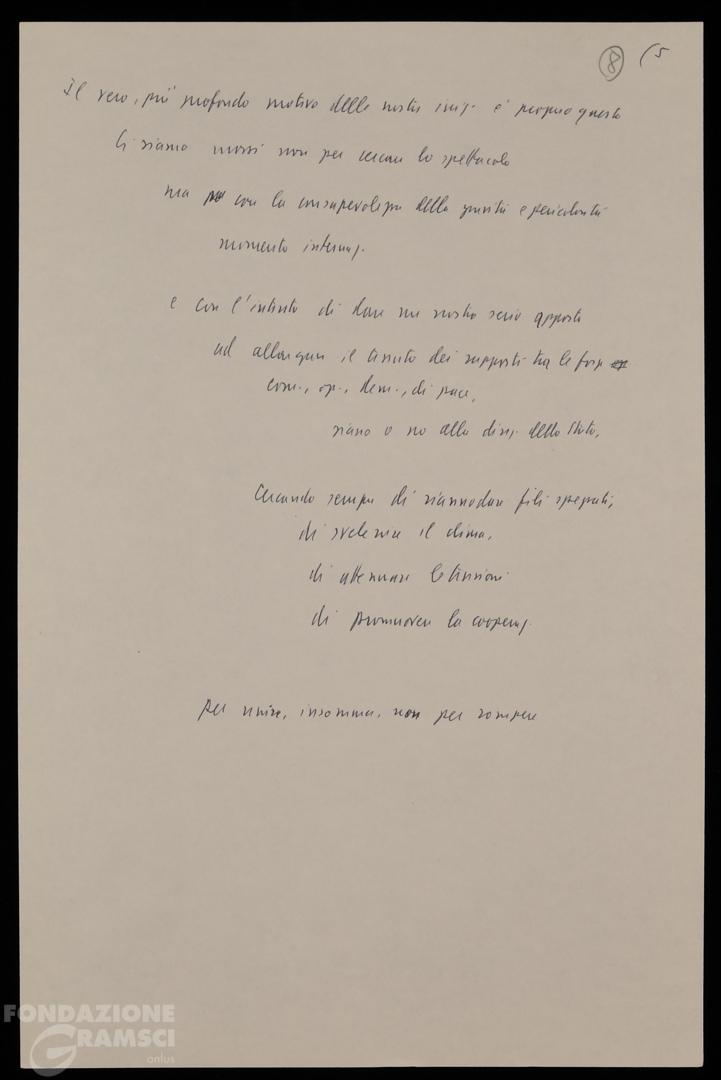 8 (5
Il vero, più profondo motivo delle nostre iniz. è proprio questo
Ci siamo mossi non per cercare lo spettacolo
ma con la consapevolezza della gravità e pericolosità
momento internaz.
e con l'intento di dare un nostro serio apporto
ad allargare il tessuto dei rapporti tra le forze
com., op., dem., di pace,
siano o no alla direz. dello Stato,
Cercando sempre di riannodare fili spezzati,
di svelenire il clima,
di attenuare le tensioni
di promuovere la cooperaz.
Per unire, insomma, non per rompere
FONDAZIONE
GRAMSCI
onlus